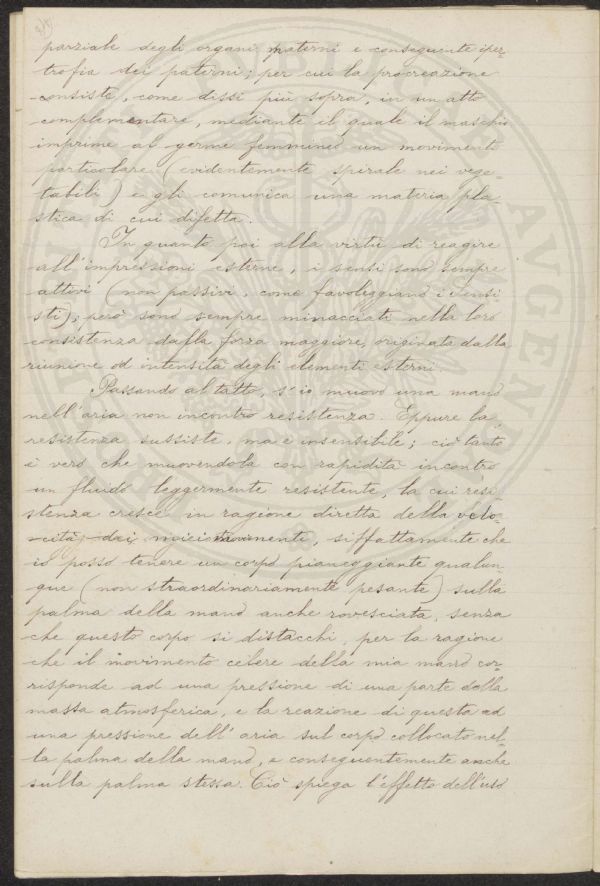 parziale degli organi materni e conseguente iper-
trofia dei paterni; per cui la procreazione
consiste, come dissi più sopra, in un atto
complementare, mediante il quale il maschio
imprime al germe femmineo un movimento
particolare (evidentemente spirale nei vege-
tabili) e gli comunica una materia pla-
stica di cui difetta.
In quanto poi alla virtù di reagire
all'impressioni esterne, i sensi sono sempre
attivi (non passivi, come favoleggiano i sensi
sti); però sono sempre minacciati nella loro
consistenza dalla forza maggiore, originata dalla
riunione od intensità degli elementi esterni.
Passando al tatto, s'io muovo una mano
nell'aria non incontro resistenza. Eppure la
resistenza sussiste, ma è insensibile; ciò tanto
è vero che muovendola con rapidità incontro
un fluido leggermente resistente, la cui resi-
stenza cresce in ragione diretta della velo-
cità, siffattamente che
io posso tenere un corpo pianeggiante qualun-
que (non straordinariamente pesante) sulla
palma della mano anche rovesciata, senza
che questo corpo si distacchi, per la ragione
che il movimento celere della mia mano cor-
risponde ad una pressione di una parte della
massa atmosferica, e la reazione di questa ad
una pressione dell'aria sul corpo collocato nel-
la palma della mano, e conseguentemente anche
sulla palma stessa. Ciò spiega l'effetto dell'uso